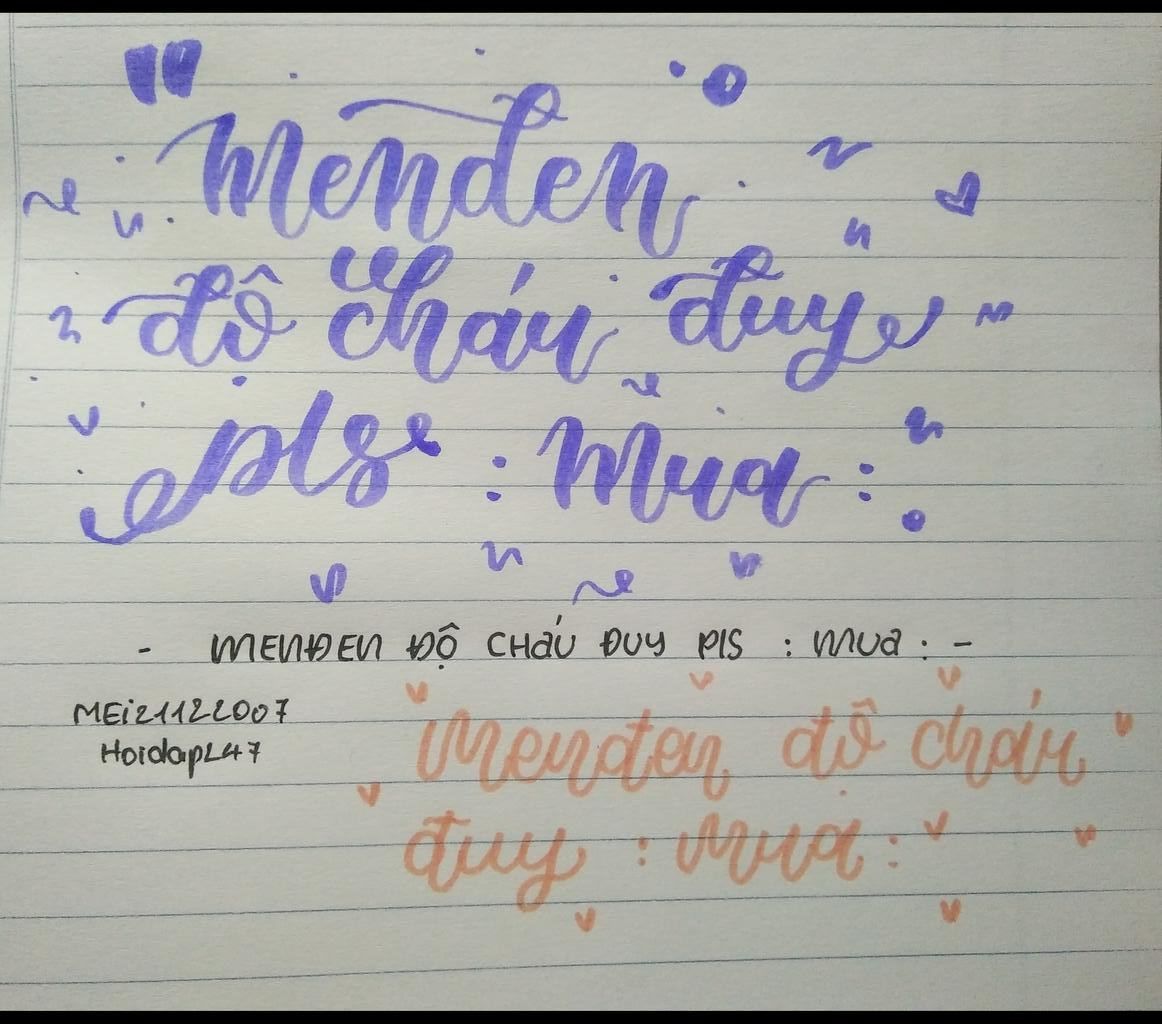 "Menđen
độ cháu đuy
pls : Mua :
- MENĐEN ĐỘ CHÁU ĐUY PlS : MUA : -
MEi21122007
Hoidap247
Menđen độ cháu
đuy : Mua :